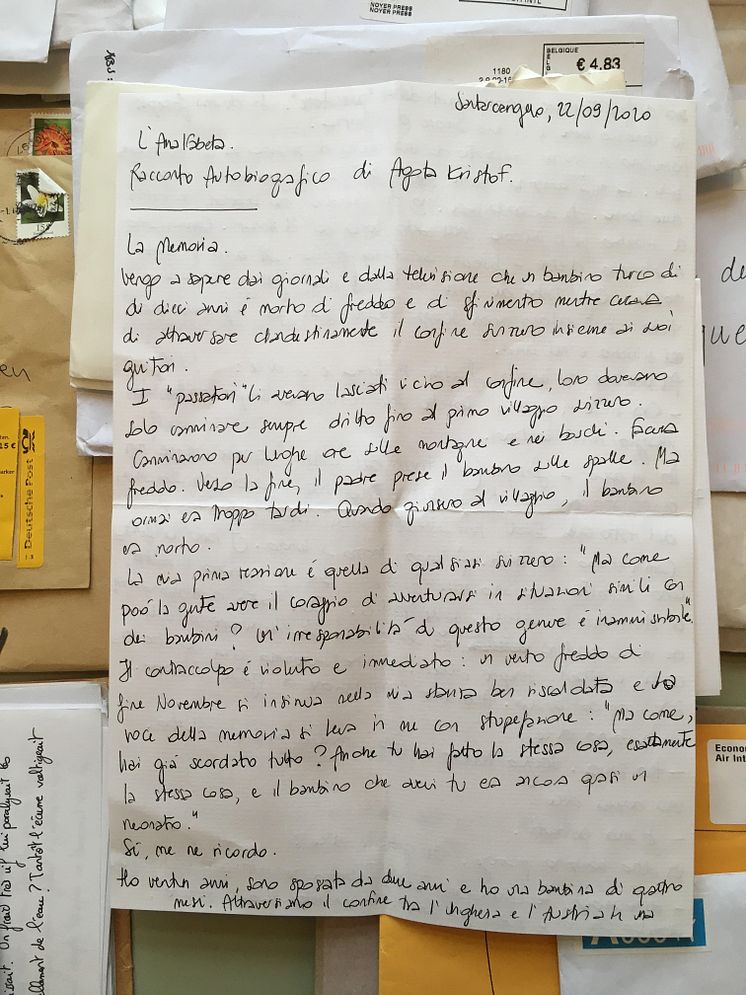 NOYER PRESS
NOYER PRESS
BELGIQUE
€ 4.83
1180
Santarcangelo, 22/09/2020
L'Analfabeta.
Racconto Autobiografico di Agota Kristof.
La Memoria.
Vengo a sapere dai giornali e dalla televisione che un bambino turco di
di dieci anni é morto di freddo e di sfinimento mentre cercava
di attraversare clandestinamente il confine svizzero insieme ai suoi
genitori.
I "passatori" li avevano lasciati vicino al confine, loro dovevano
solo camminare sempre dritto fino al primo villaggio svizzero.
Camminarono per lunghe ore sulle montagne e nei boschi. Faceva
freddo. Verso la fine, il padre prese il bambino sulle spalle. Ma
ormai era troppo tardi. Quando giunsero al villaggio, il bambino
era morto.
La mia prima reazione é quella di qualsiasi svizzero: "Ma come
puó la gente avere il coraggio di avventurarsi in situazioni simili con
dei bambini? Un'irresponsabilitá di questo genere é inammissibile".
Il contraccolpo é violento e immediato: un vento freddo di
fine Novembre si insinua nella mia stanza ben riscaldata e la
voce della memoria si leva in me con stupefazione: "Ma come,
hai giá scordato tutto? Anche tu hai fatto la stessa cosa, esattamente
la stessa cosa, e il bambino che avevi tu era ancora quasi un
neonato."
Sí, me ne ricordo.
Ho ventun anni, sono sposata da due anni e ho una bambina di quattro
mesi. Attraversiamo il confine tra l'Ungheria e l'Austria in una
de
que
en
15 €
Deutsche Post
Econom
Air Int